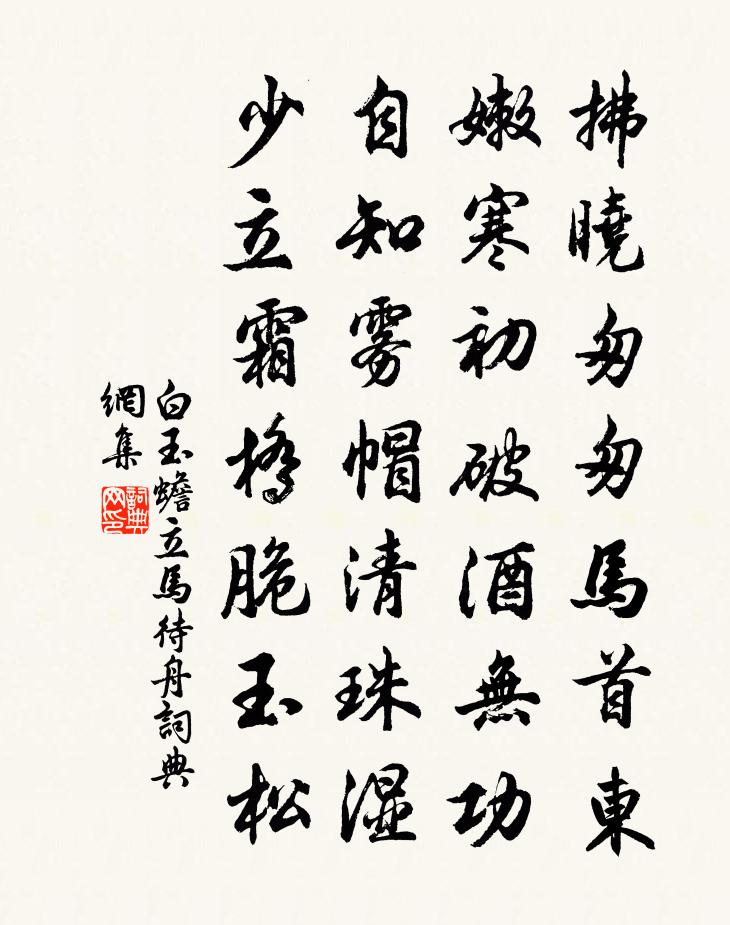 拂曉匆匆馬首東
嫩寒初破酒無功
自知雾帽清珠湿
少立霜橋脆玉松
白玉蟾立馬待舟詞典
網集
詞典
网印